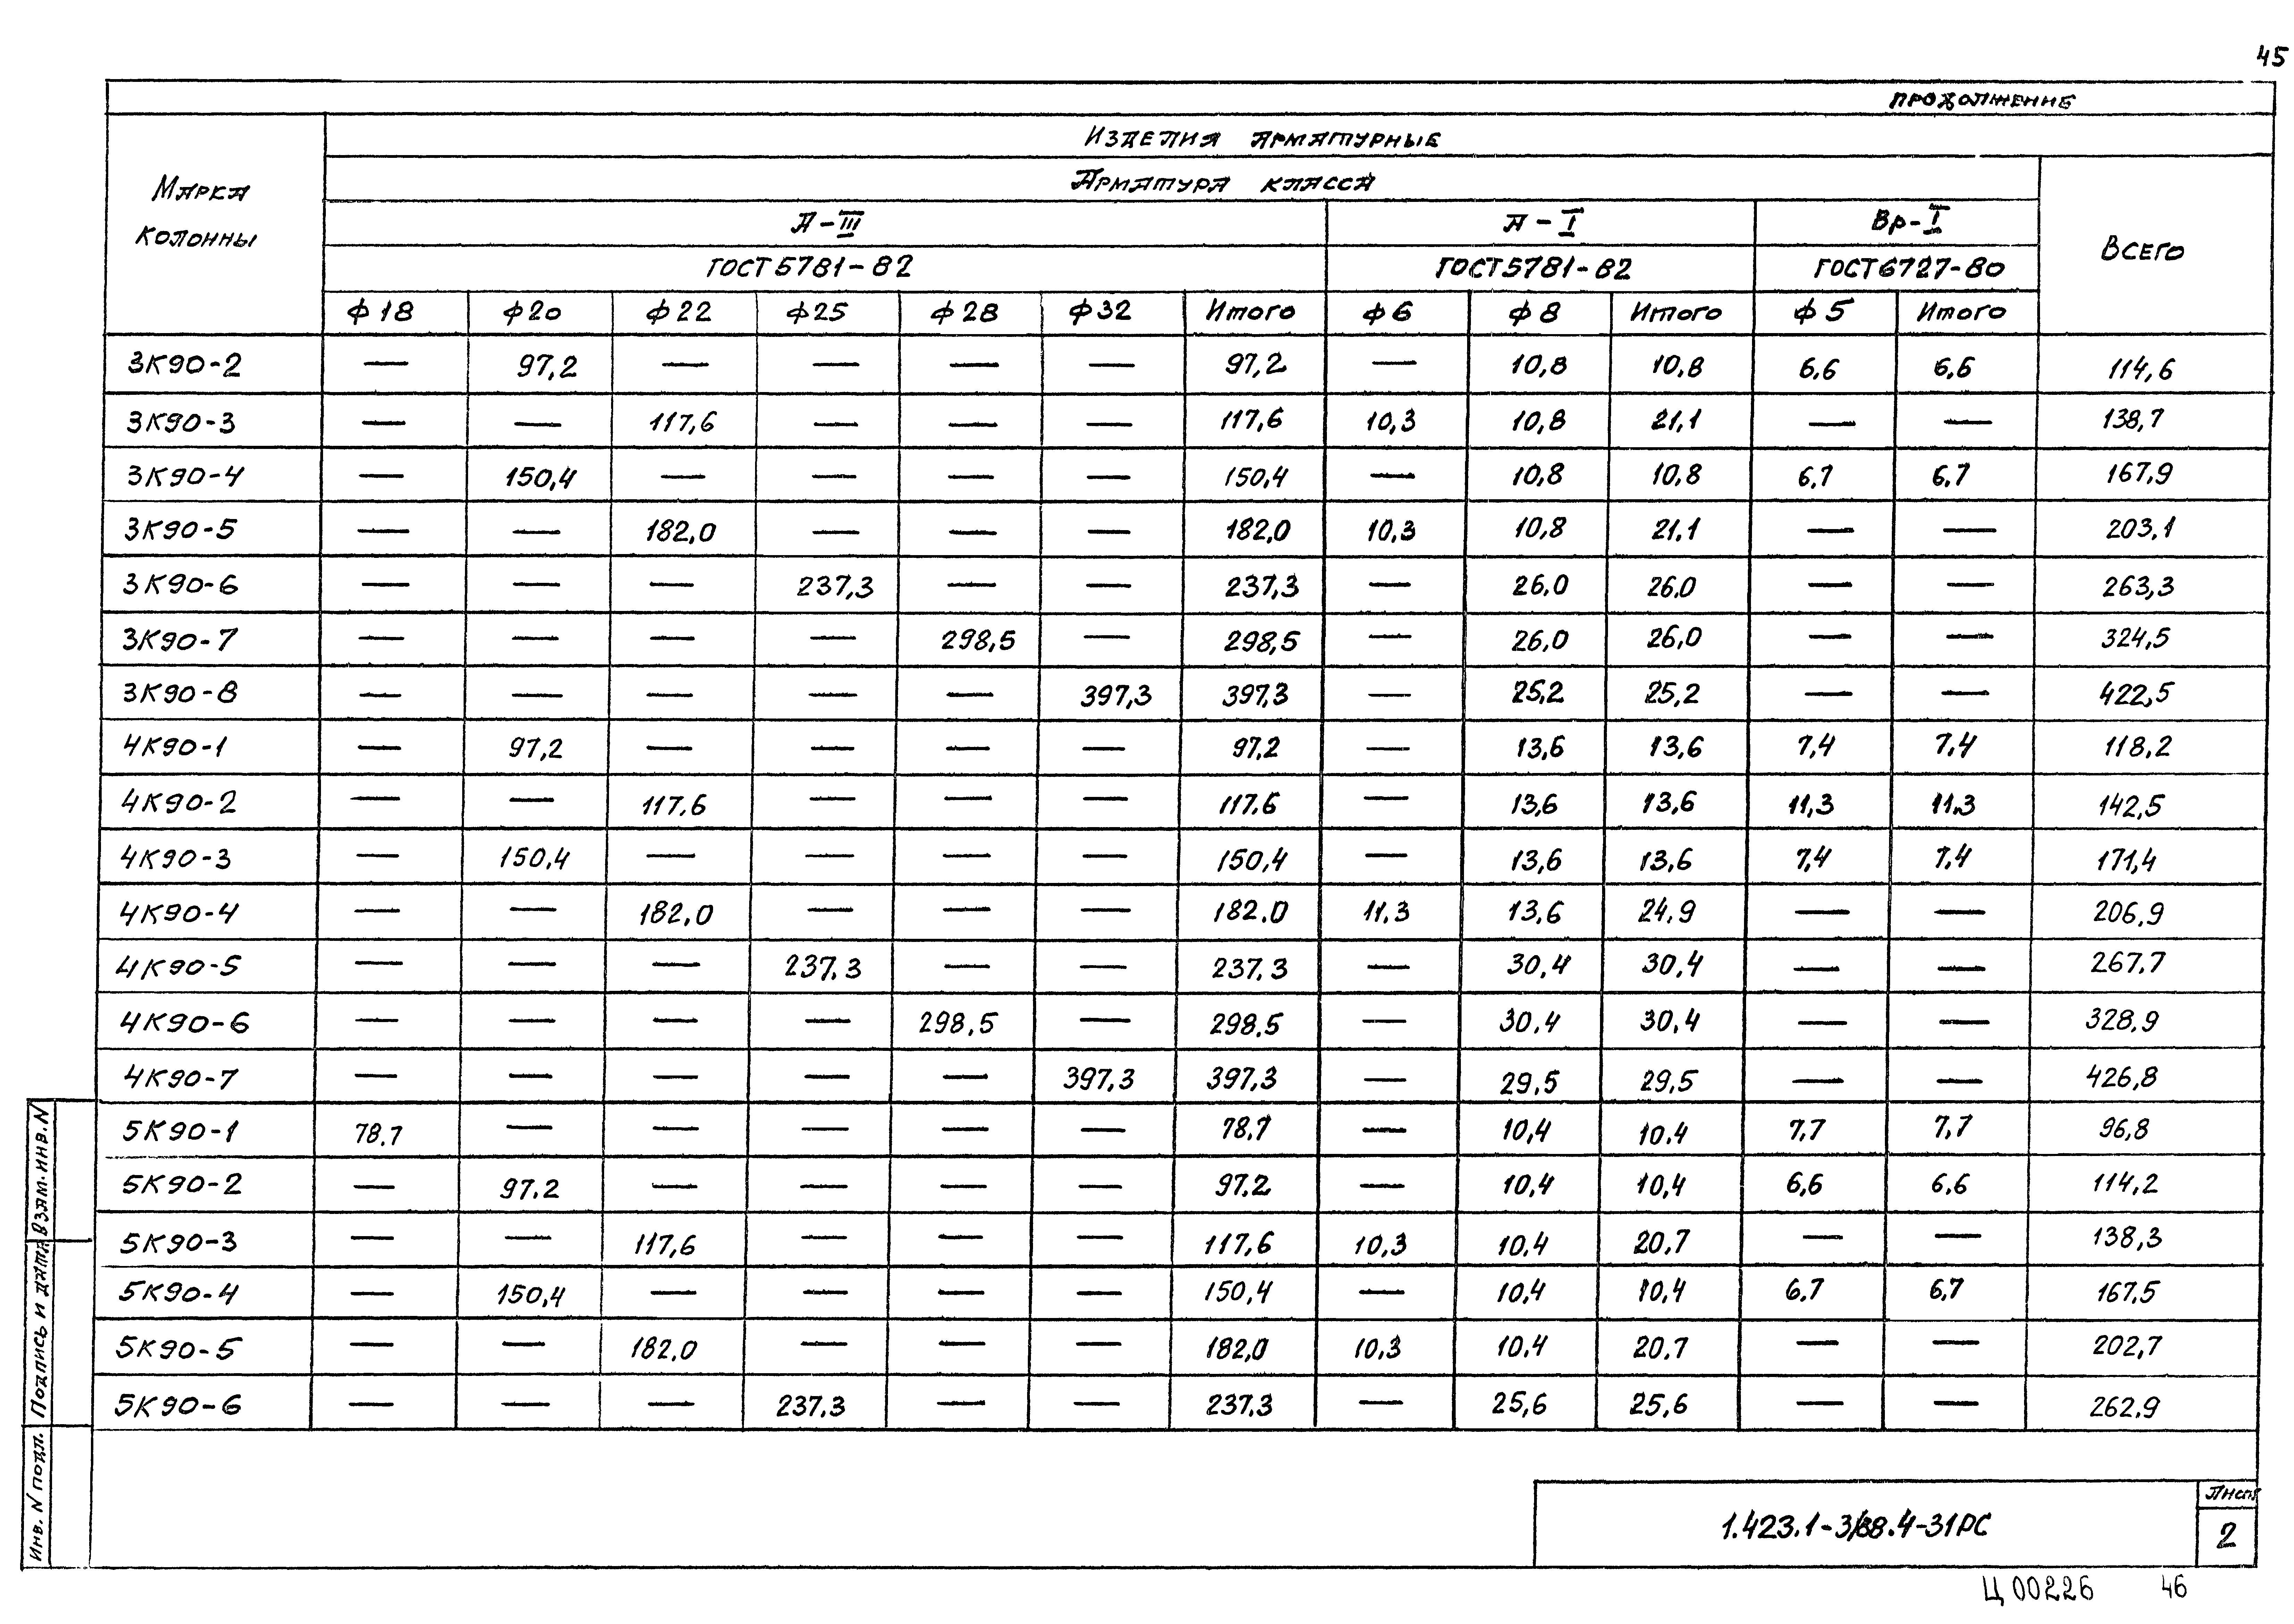 45
ПРОДОЛЖЕНИЕ
ИЗДЕЛИЯ АРМАТУРНЫЕ
МАРКА КОЛОННЫ
АРМАТУРА КЛАССА
ВСЕГО
А-III А-I Вр-I
ГОСТ 5781-82 ГОСТ 5781-82 ГОСТ 6727-80
Ф18 Ф20 Ф22 Ф25 Ф28 Ф32 Итого Ф6 Ф8 Итого Ф5 Итого
3К90-2 — 97,2 — — — — 97,2 — 10,8 10,8 6,6 6,6 114,6
3К90-3 — — 117,6 — — — 117,6 10,3 10,8 21,1 — — 138,7
3К90-4 — 150,4 — — — — 150,4 — 10,8 10,8 6,7 6,7 167,9
3К90-5 — — 182,0 — — — 182,0 10,3 10,8 21,1 — — 203,1
3К90-6 — — — 237,3 — — 237,3 — 26,0 26,0 — — 263,3
3К90-7 — — — — 298,5 — 298,5 — 26,0 26,0 — — 324,5
3К90-8 — — — — — 397,3 397,3 — 25,2 25,2 — — 422,5
4К90-1 — 97,2 — — — — 97,2 — 13,6 13,6 7,4 7,4 118,2
4К90-2 — — 117,6 — — — 117,6 — 13,6 13,6 11,3 11,3 142,5
4К90-3 — 150,4 — — — — 150,4 — 13,6 13,6 7,4 7,4 171,4
4К90-4 — — 182,0 — — — 182,0 11,3 13,6 24,9 — — 206,9
4К90-5 — — — 237,3 — — 237,3 — 30,4 30,4 — — 267,7
4К90-6 — — — — 298,5 — 298,5 — 30,4 30,4 — — 328,9
4К90-7 — — — — — 397,3 397,3 — 29,5 29,5 — — 426,8
5К90-1 78,7 — — — — — 78,7 — 10,4 10,4 7,7 7,7 96,8
5К90-2 — 97,2 — — — — 97,2 — 10,4 10,4 6,6 6,6 114,2
5К90-3 — — 117,6 — — — 117,6 10,3 10,4 20,7 — — 138,3
5К90-4 — 150,4 — — — — 150,4 — 10,4 10,4 6,7 6,7 167,5
5К90-5 — — 182,0 — — — 182,0 10,3 10,4 20,7 — — 202,7
5К90-6 — — — 237,3 — — 237,3 — 25,6 25,6 — — 262,9
Инв. N подл.
Подпись и дата
Взам. инв. N
1.423.1-3/88.4-31РС
Лист
2
Ц00226 46